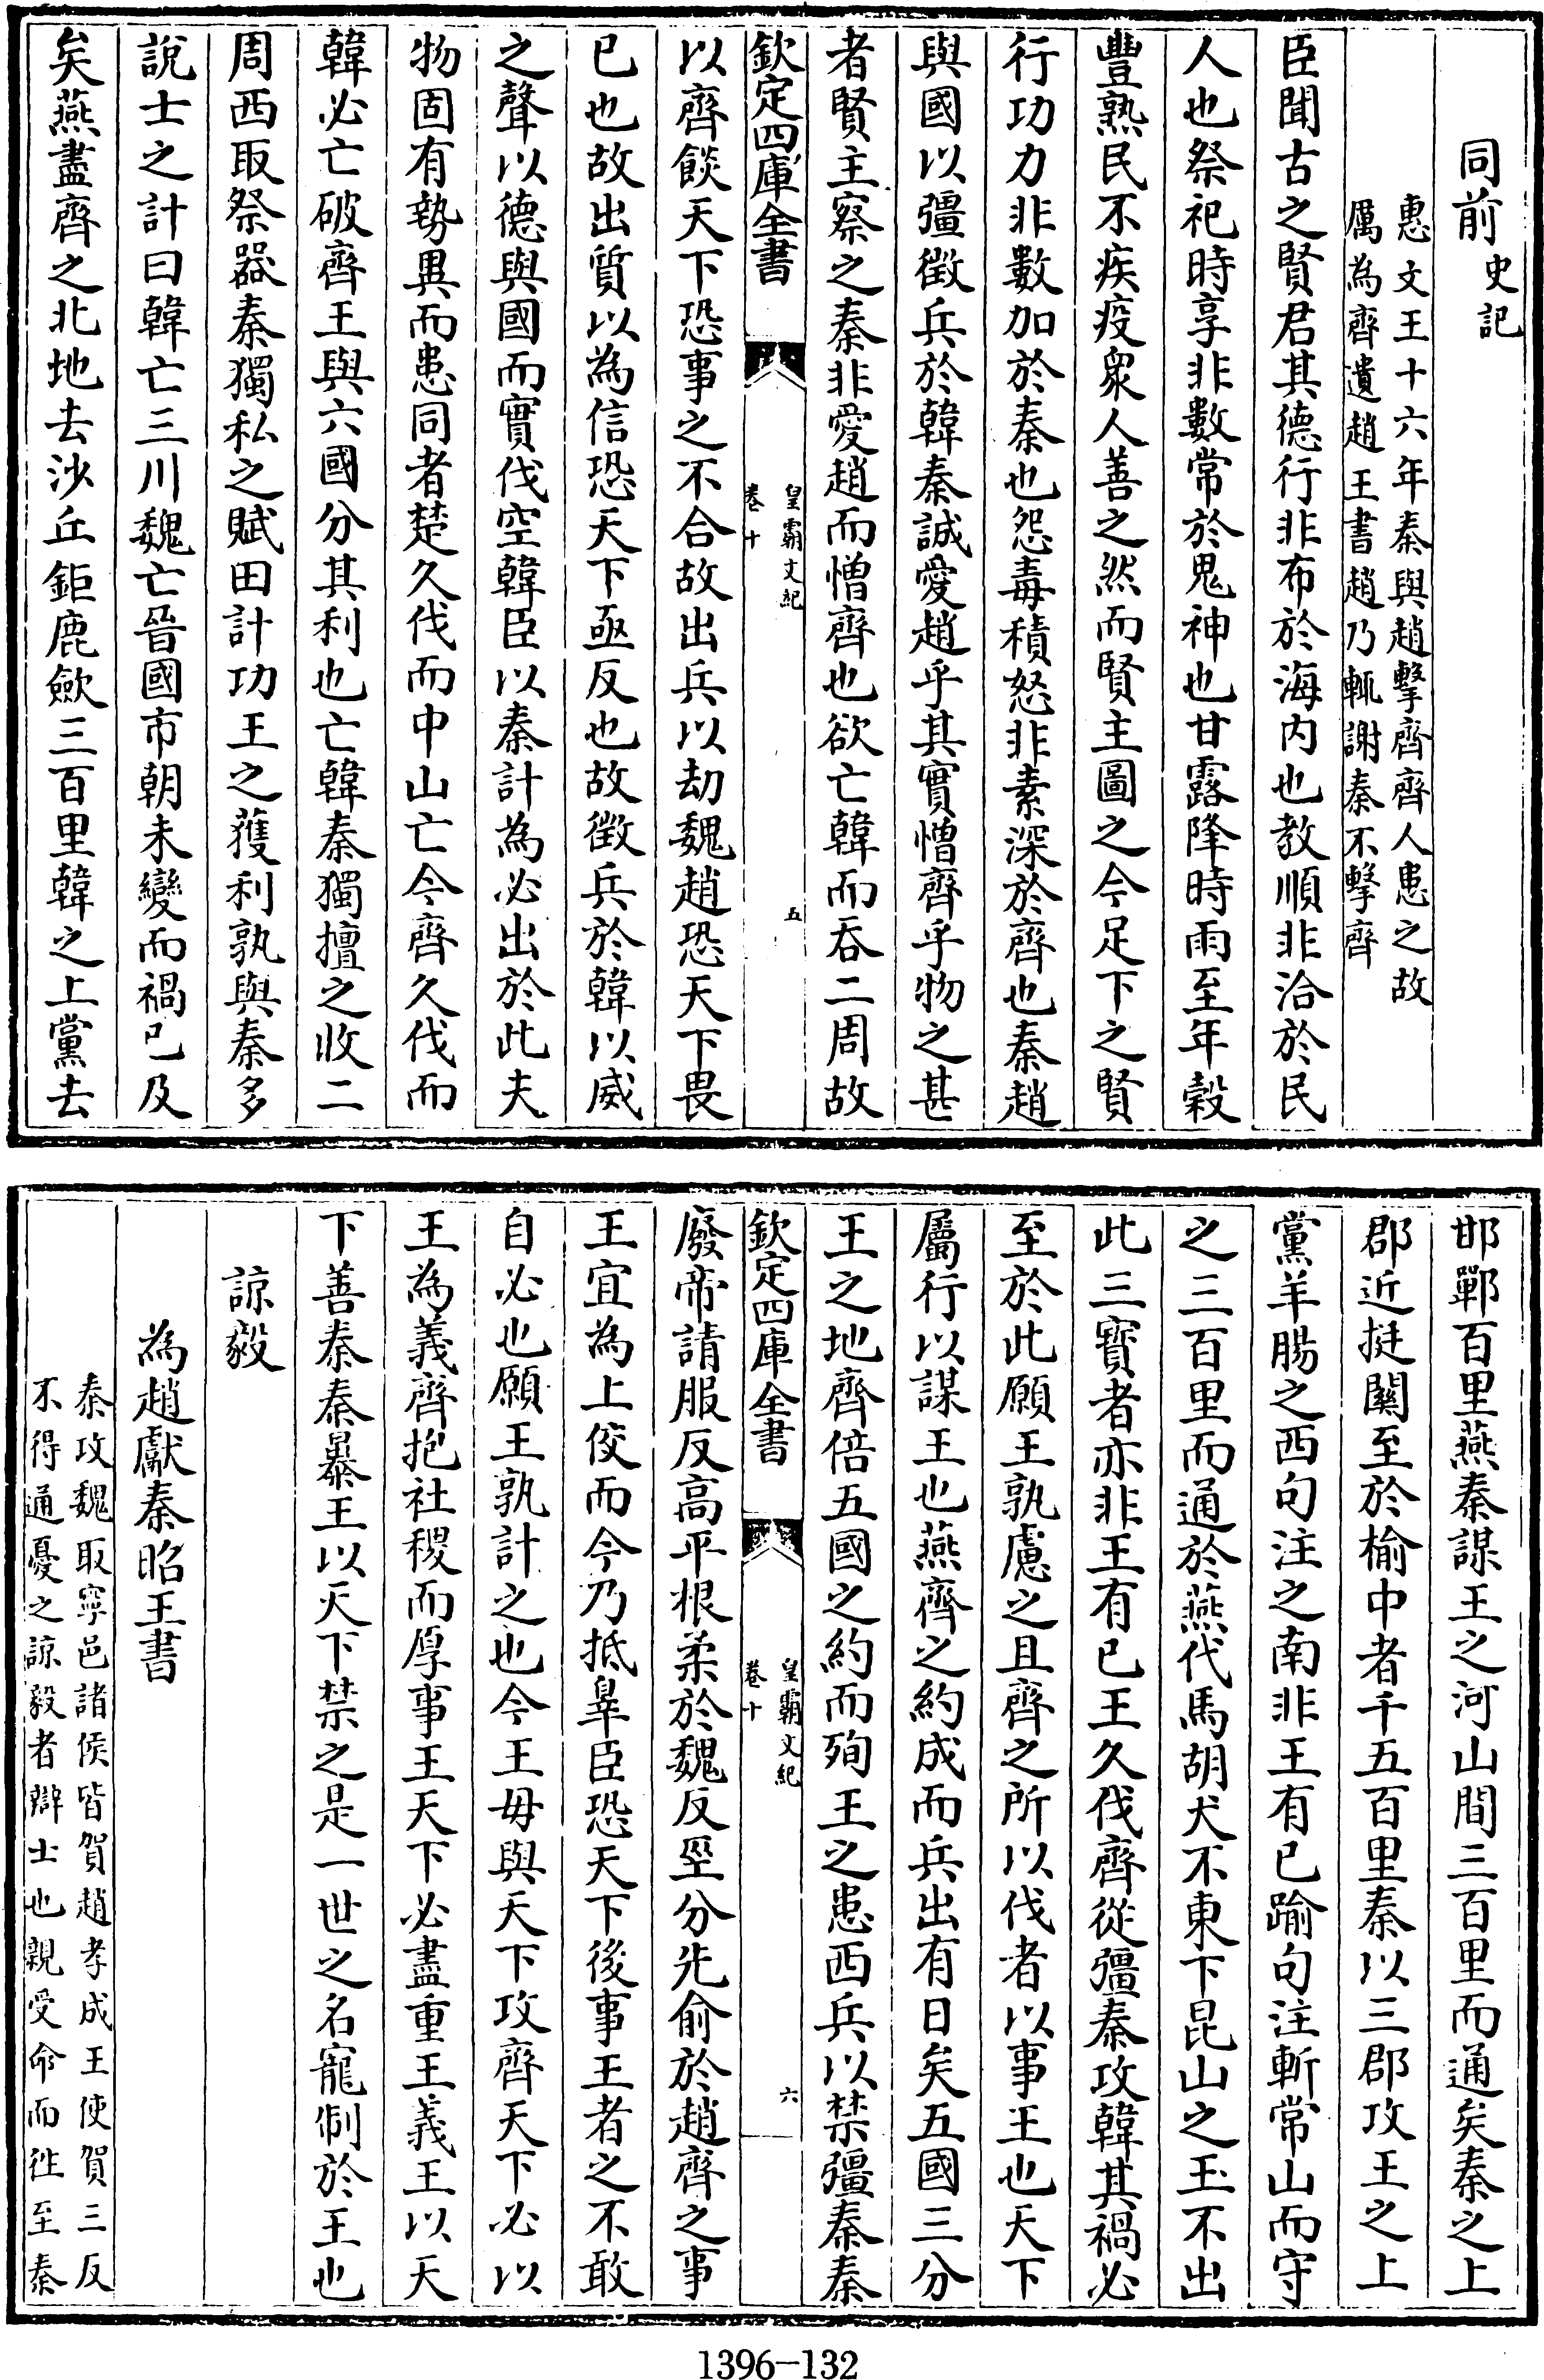 同前史記
惠文王十六年秦與趙擊齊齊人患之故
厲為齊遺趙王書趙乃輒謝秦不擊齊
臣聞古之賢君其德行非布於海内也教順非洽於民
人也祭祀時享非數常於鬼神也甘露降時雨至年榖
豐熟民不疾疫衆人善之然而賢主圖之今足下之賢
行功力非數加於秦也怨毒積怒非素深於齊也秦趙
與國以彊徵兵於韓秦誠愛趙乎其實憎齊乎物之甚
者賢主察之秦非愛趙而憎齊也欲亡韓而吞二周故
欽定四庫全書
皇霸文紀
卷十
五
以齊餤天下恐事之不合故出兵以劫魏趙恐天下畏
已也故出質以為信恐天下亟反也故徵兵於韓以威
之聲以德與國而實伐空韓臣以秦計為必出於此夫
物固有勢異而患同者楚久伐而中山亡今齊久伐而
韓必亡破齊王與六國分其利也亡韓秦獨擅之收二
周西取祭器秦獨私之賦田計功王之獲利孰與秦多
說士之計曰韓亡三川魏亡晉國市朝未變而禍已及
矣燕盡齊之北地去沙丘鉅鹿歛三百里韓之上黨去
邯鄲百里燕秦謀王之河山間三百里而通矣秦之上
郡近挺關至於榆中者千五百里秦以三郡攻王之上
黨羊腸之西句注之南非王有已踰句注斬常山而守
之三百里而通於燕代馬胡犬不東下昆山之玉不出
此三寳者亦非王有已王久伐齊從彊秦攻韓其禍必
至於此願王孰慮之且齊之所以伐者以事王也天下
屬行以謀王也燕齊之約成而兵出有日矣五國三分
王之地齊倍五國之約而殉王之患西兵以禁彊秦秦
欽定四庫全書
皇霸文紀
卷十
六
廢帝請服反高平根柔於魏反坙分先俞於趙齊之事
王宜為上佼而今乃抵辠臣恐天下後事王者之不敢
自必也願王孰計之也今王毋與天下攻齊天下必以
王為義齊抱社稷而厚事王天下必盡重王義王以天
下善秦秦暴王以天下禁之是一世之名寵制於王也
諒毅
為趙獻秦昭王書
秦攻魏取寧邑諸侯皆賀趙孝成王使賀三反
不得通憂之諒毅者辯士也親受命而往至秦
1396-132